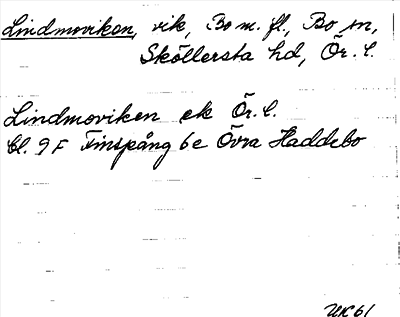 Lindmoviken, vik, Bo m. fl., Bo sn,
Sköllersta hd, Ör. l.
Lindmoviken ek Ör. l.
bl. 9 F Finspång 6e Övra Haddebo
UK 61